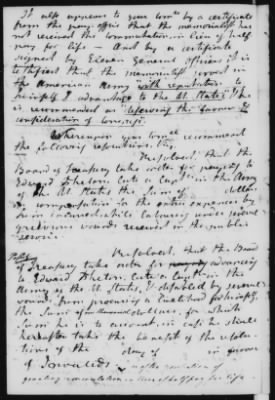 It also appears to your comee by a certificate
from the pay office that the memorialist has
not received the commutation in lieu of half
pay for life — And by a certificate
signed by Eleven General officers it is
testified that the memorialist served in
the American Army with reputation to
himself & advantage to the U. States, & he
is recommended as deserving the favour &
consideration of Congress.
Whereupon your comee recommend
the following resolutions, viz.
Resolved, that the
Board of Treasury take order for paying to
Edward Phelon late a Captain in the Army
of the U. States the Sum of dollars
in compensation for the extra expences by
him incurred while labouring under several
grievous wounds received in the public
service.
Resolved, that the Board
of Treasury take order for advancing
to Edward Phelon, late a Captn in the
Army of the U. States, & disabled by several
wounds from procuring a livelihood for himself,
the Sum of dollars, for which
Sum he is to account, in case he shall
hereafter take the benefit of the resolu-
tions of the day of in favour
of Invalids